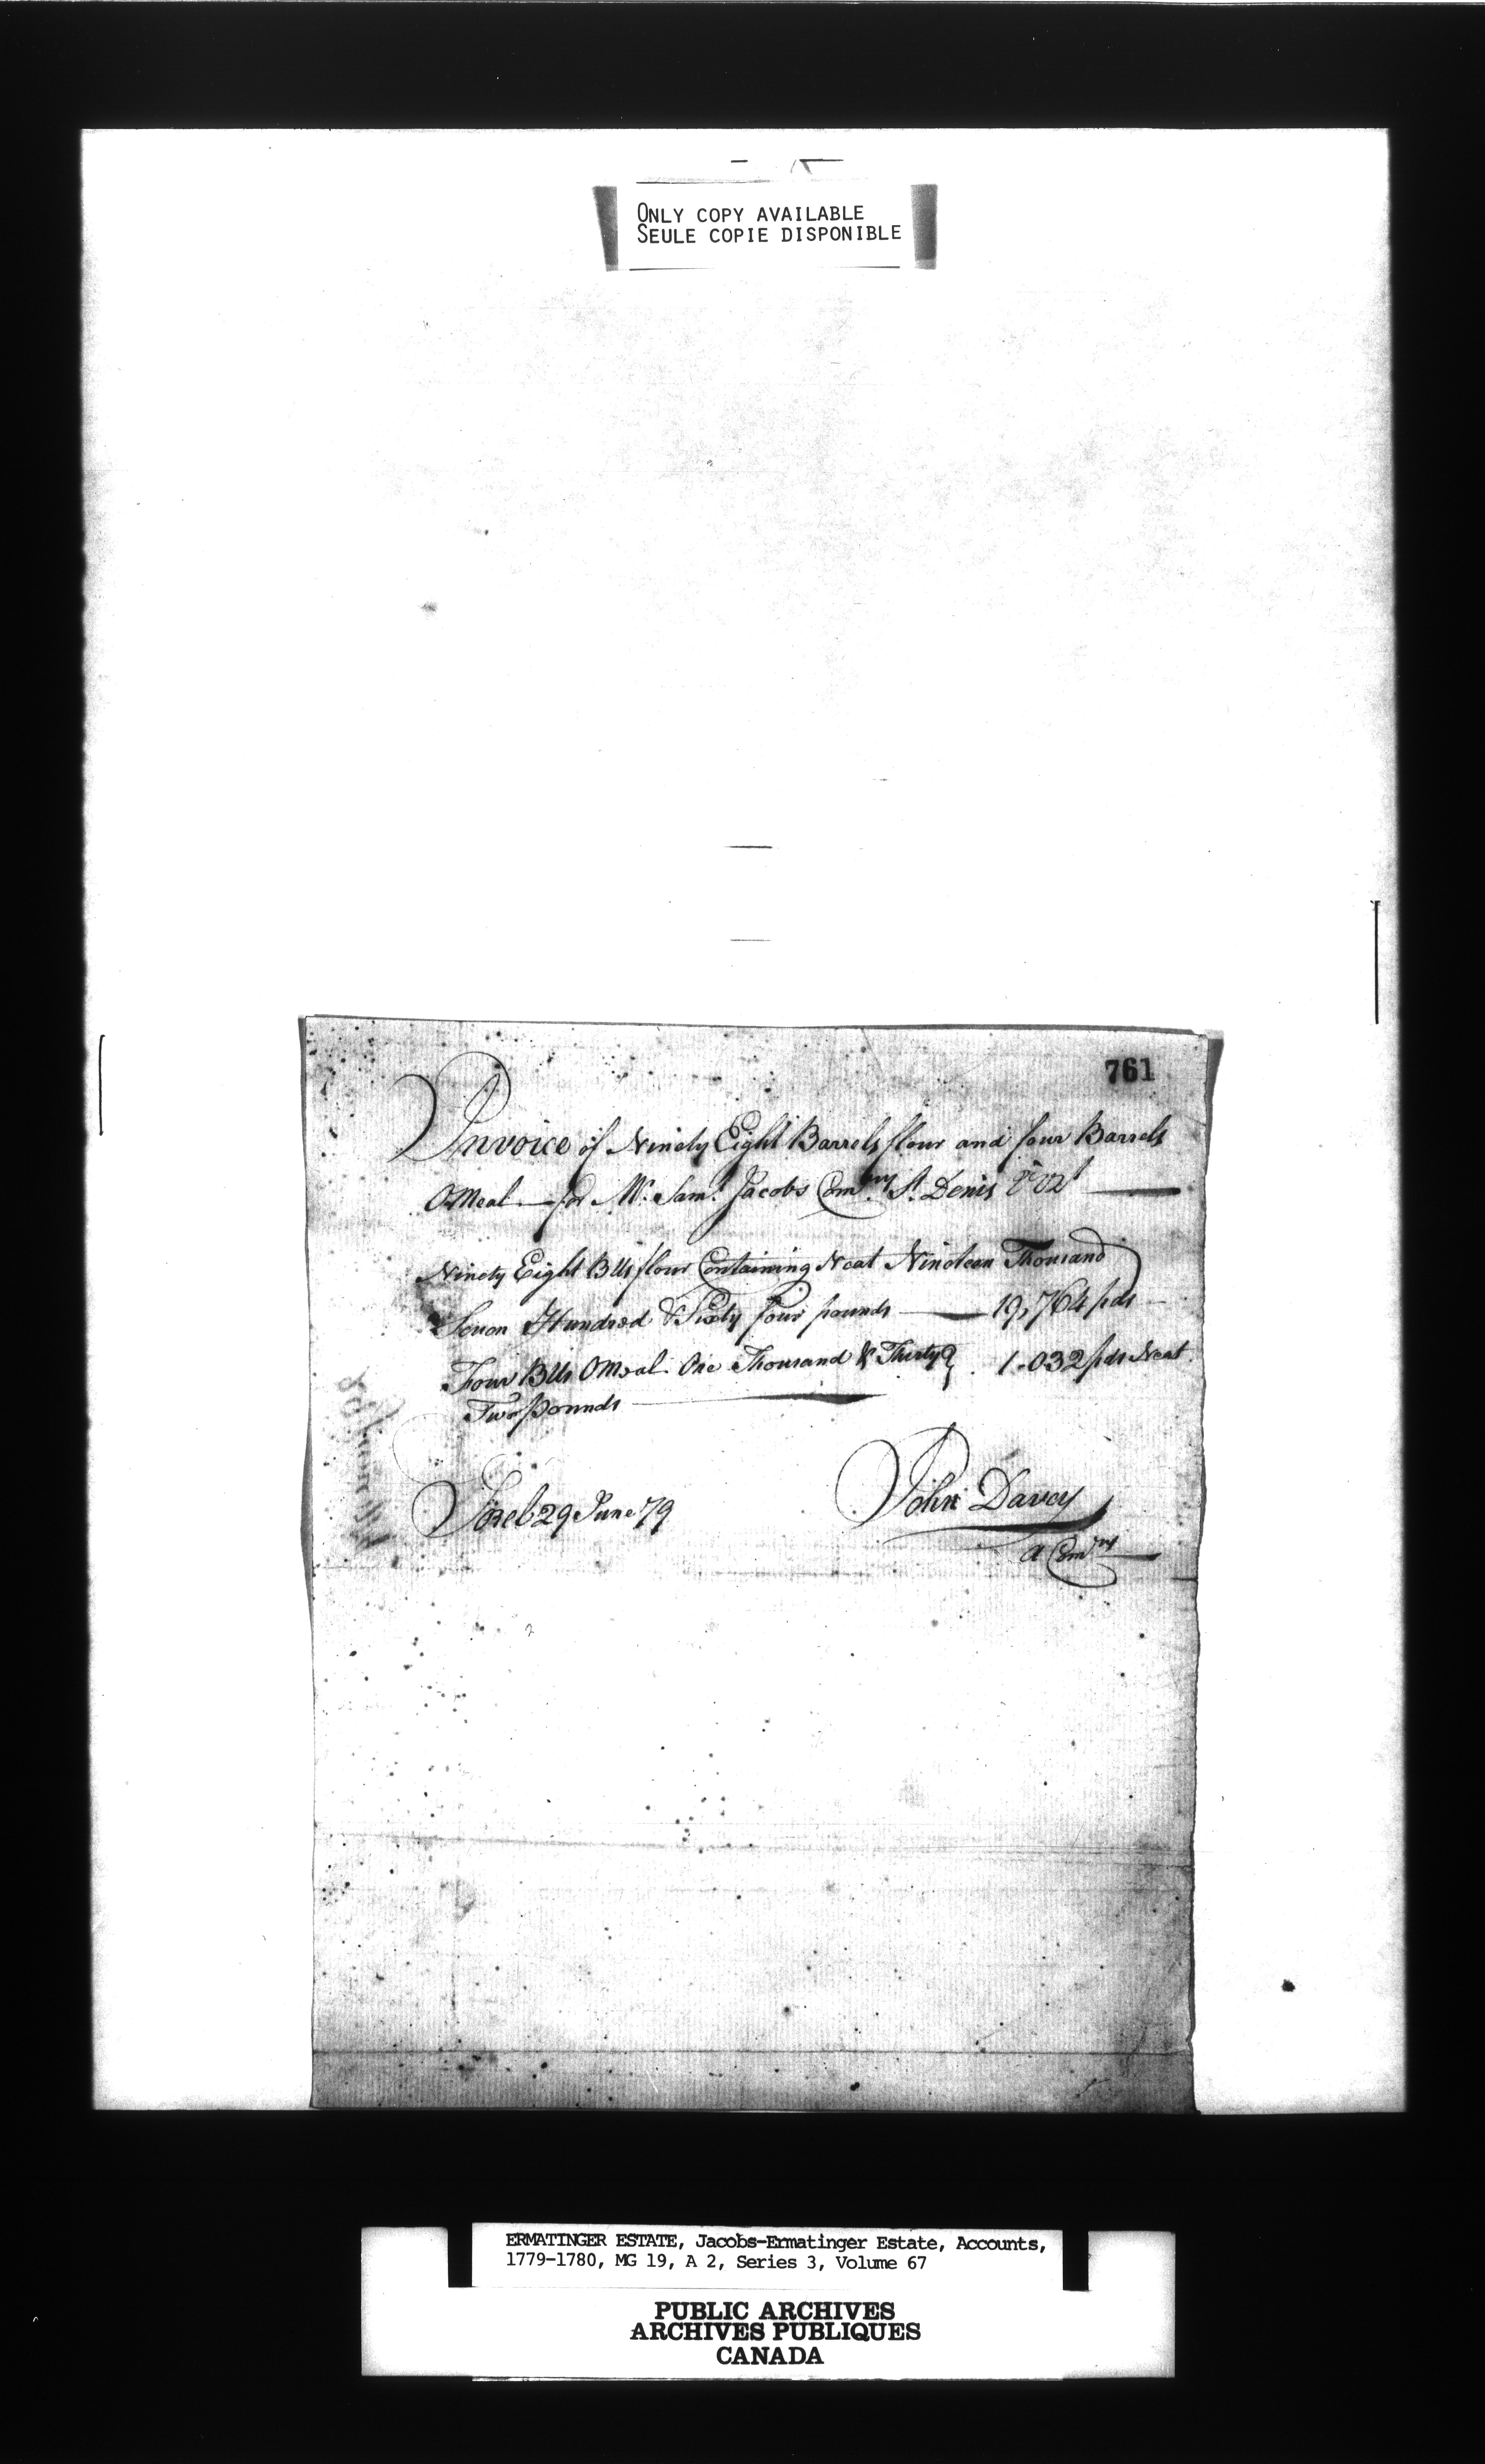 ONLY COPY AVAILABLE
SEULE COPIE DISPONIBLE
761
Invoice of Ninety Eight Barrels flour and four Barrels
OMeal — for Mr. Saml. Jacobs Comry St. Denis
Ninety Eight Blls flour Containing Neat Nineteen Thousand
Seven Hundred & Sixty four pounds — 19,764 pds
Four Blls OMeal One Thousand & Thirty } 1.032 pds Neat
Two pounds
Sorel 29 June 79
John Davey
A Comry
ERMATINGER ESTATE, Jacobs-Ermatinger Estate, Accounts,
1779-1780, MG 19, A 2, Series 3, Volume 67
PUBLIC ARCHIVES
ARCHIVES PUBLIQUES
CANADA